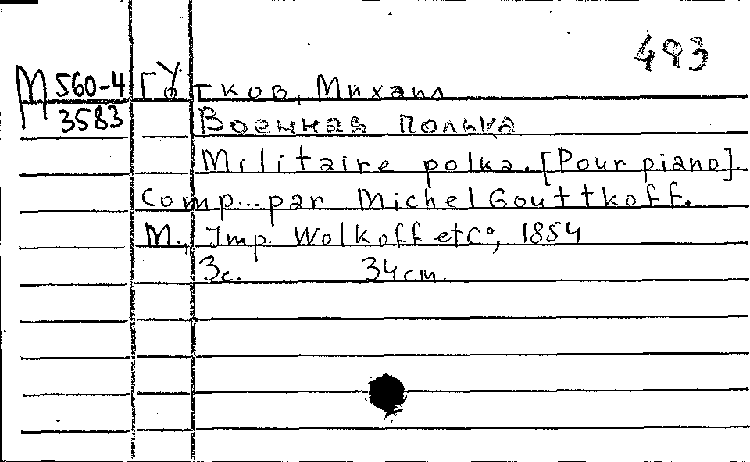 493
М 560-4 Гутков, Михаил
3583 Военная полька
Militaire polka. [Pour piano].
Comp... par Michel Gouttkoff.
М., Imp. Wolkoff et C°, 1854
3с. 34см.